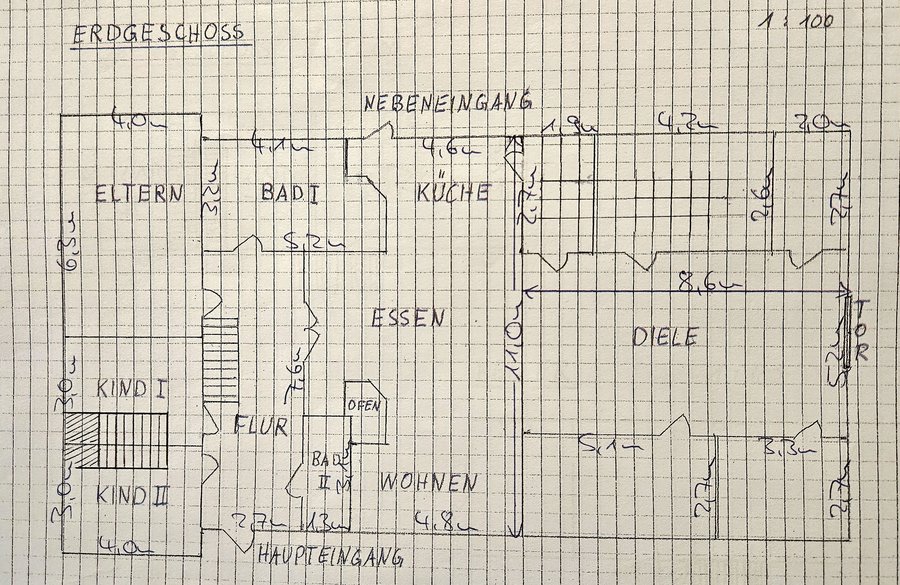 ERDGESCHOSS
1 : 100
NEBENEINGANG
4,0m
4,1m
4,6m
1,9m
4,2m
2,0m
ELTERN
3,2m
BAD I
KÜCHE
2,7m
2,6m
2,7m
6,3m
5,2m
8,6m
ESSEN
11,0m
DIELE
5,2m
TOR
7,6m
3,0m
KIND I
OFEN
FLUR
BAD
II
5,1m
3,3m
3,0m
KIND II
WOHNEN
2,7m
2,7m
2,7m
1,3m
4,8m
4,0m
HAUPTEINGANG